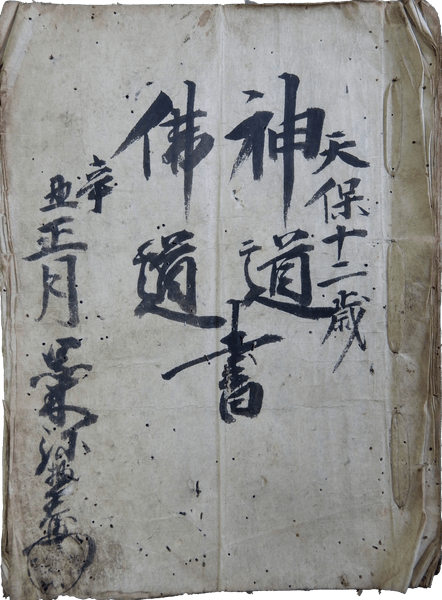 天保十二歳
神道
佛道
書
辛
丑正月